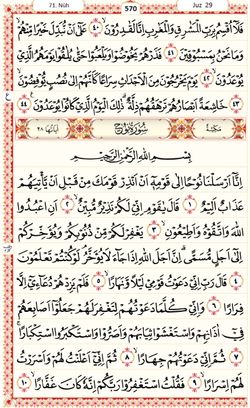 71. Nûh 570 Juz 29
فَلَٓا اُقْسِمُ بِرَبِّ الْمَشَارِقِ وَالْمَغَارِبِ اِنَّا لَقَادِرُونَ ﴿٤٠﴾ عَلٰٓى اَنْ نُبَدِّلَ خَيْرًا مِنْهُمْ
وَمَا نَحْنُ بِمَسْبُوقِينَ ﴿٤١﴾ فَذَرْهُمْ يَخُوضُوا وَيَلْعَبُوا حَتّٰى يُلَاقُوا يَوْمَهُمُ الَّذِي
يُوعَدُونَ ﴿٤٢﴾ يَوْمَ يَخْرُجُونَ مِنَ الْاَجْدَاثِ سِرَاعًا كَاَنَّهُمْ اِلٰى نُصُبٍ يُوفِضُونَ
﴿٤٣﴾ خَاشِعَةً اَبْصَارُهُمْ تَرْهَقُهُمْ ذِلَّةٌ ذٰلِكَ الْيَوْمُ الَّذِي كَانُوا يُوعَدُونَ ﴿٤٤﴾
مَكِّيَّة سُورَةُ نُوحٍ اٰيَاتُهَا ٢٨
بِسْمِ اللّٰهِ الرَّحْمٰنِ الرَّحِيمِ
اِنَّٓا اَرْسَلْنَا نُوحًا اِلٰى قَوْمِهٖٓ اَنْ اَنْذِرْ قَوْمَكَ مِنْ قَبْلِ اَنْ يَاْتِيَهُمْ
عَذَابٌ اَلِيمٌ ﴿١﴾ قَالَ يَا قَوْمِ اِنِّي لَكُمْ نَذِيرٌ مُبِينٌ ﴿٢﴾ اَنِ اعْبُدُوا
اللّٰهَ وَاتَّقُوهُ وَاَطِيعُونِ ﴿٣﴾ يَغْفِرْ لَكُمْ مِنْ ذُنُوبِكُمْ وَيُؤَخِّرْكُمْ
اِلٰٓى اَجَلٍ مُسَمًّى اِنَّ اَجَلَ اللّٰهِ اِذَا جَٓاءَ لَا يُؤَخَّرُ لَوْ كُنْتُمْ تَعْلَمُونَ
﴿٤﴾ قَالَ رَبِّ اِنِّي دَعَوْتُ قَوْمِي لَيْلًا وَنَهَارًا ﴿٥﴾ فَلَمْ يَزِدْهُمْ دُعَٓائِٓي اِلَّا
فِرَارًا ﴿٦﴾ وَاِنِّي كُلَّمَا دَعَوْتُهُمْ لِتَغْفِرَ لَهُمْ جَعَلُٓوا اَصَابِعَهُمْ
فِٓي اٰذَانِهِمْ وَاسْتَغْشَوْا ثِيَابَهُمْ وَاَصَرُّوا وَاسْتَكْبَرُوا اسْتِكْبَارًا
﴿٧﴾ ثُمَّ اِنِّي دَعَوْتُهُمْ جِهَارًا ﴿٨﴾ ثُمَّ اِنِّٓي اَعْلَنْتُ لَهُمْ وَاَسْرَرْتُ
لَهُمْ اِسْرَارًا ﴿٩﴾ فَقُلْتُ اسْتَغْفِرُوا رَبَّكُمْ اِنَّهُ كَانَ غَفَّارًا ﴿١٠﴾